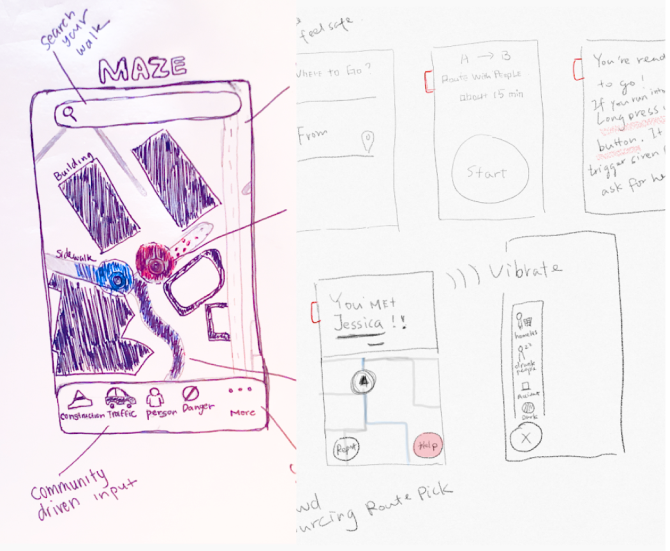 search
your
walk
MAZE
Building
Sidewalk
Construction
Traffic
person
Danger
More
community
driven input
feel safe.
Where to Go?
From
A → B
Route with People
about 15 min
Start
You're read
to go!
If you run into
Long press
button. It
trigger siren
ask for he
You MET
Jessica!!
Report
Help
))) Vibrate
homeless
drunk
people
Accident
Dark
X
wd
urcing Route Pick